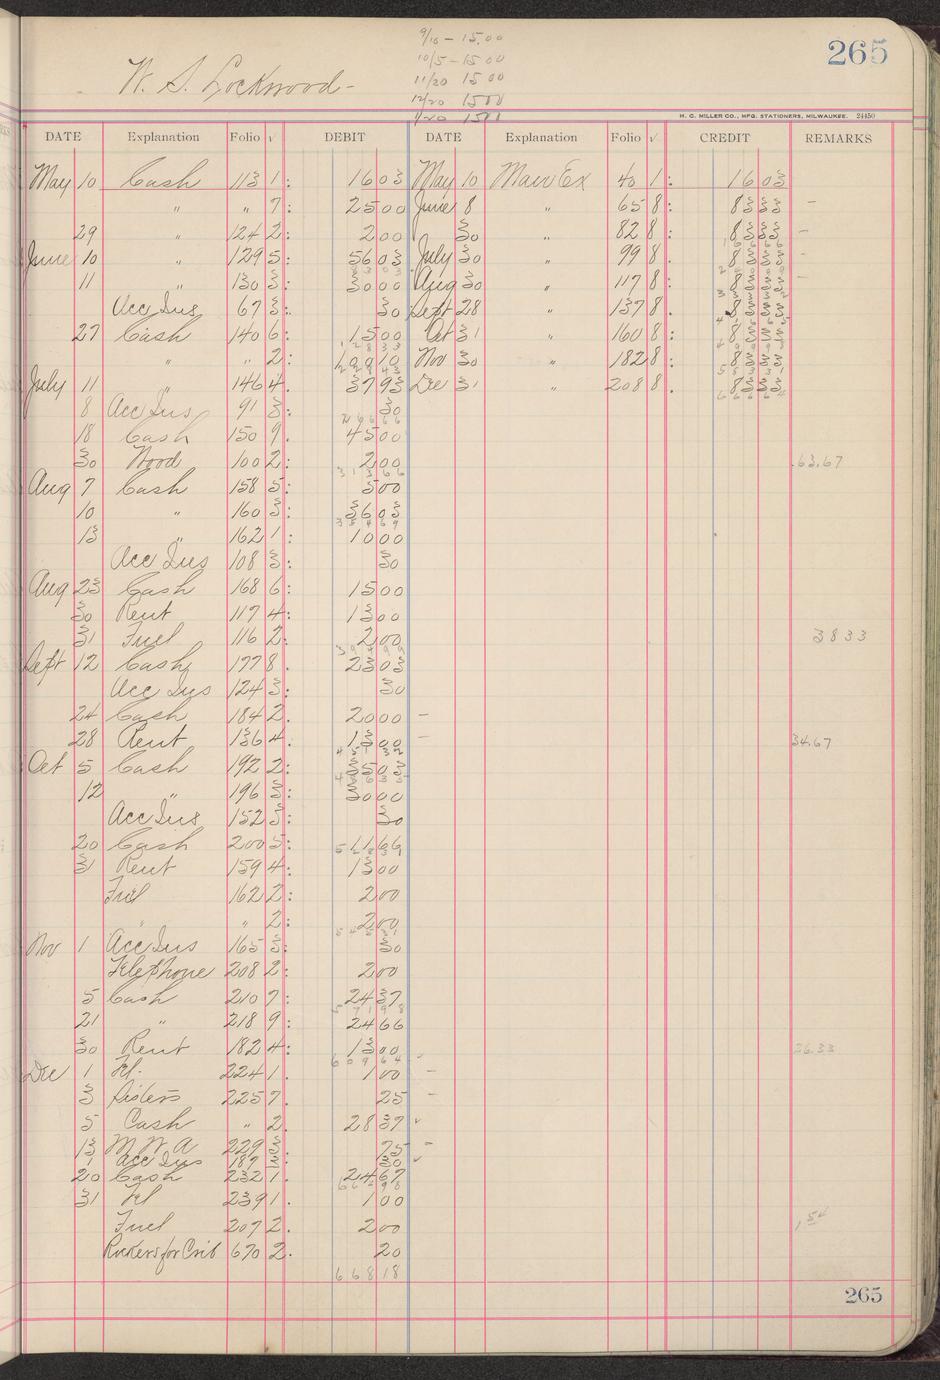 9/10 - 15.00
10/5 - 15 00
11/20 15 00
12/20 15 00
1/20 15 00
265
W. S. Lockwood -
H. C. MILLER CO., MFG. STATIONERS, MILWAUKEE. 24450
DATE Explanation Folio √ DEBIT DATE Explanation Folio √ CREDIT REMARKS
May 10 Cash 113 1: 16 03 May 10 Main Ex 40 1: 16 03
" " 7: 25 00 June 8 " 65 8: 83 33 -
29 " 124 2: 2 00 30 " 82 8: 83 33 -
June 10 " 129 5: 56 03 July 30 " 99 8. 83 33 -
11 " 130 3: 30 00 Aug 30 " 117 8: 83 33 -
Acc Ins 67 3: 30 Sept 28 " 137 8. 83 33
27 Cash 140 6: 15 00 Oct 31 " 160 8: 83 33
" " 2: Nov 30 " 182 8: 83 33
July 11 " 146 4. 37 93 Dec 31 " 208 8. 83 33
8 Acc Ins 91 3: 30
18 Cash 150 9. 45 00
30 Wood 100 2: 2 00 63.67
Aug 7 Cash 158 5: 5 00
10 " 160 3: 36 03
13 " 162 1: 10 00
Acc Ins 108 3: 30
Aug 23 Cash 168 6: 15 00
30 Rent 117 4: 13 00
31 Fuel 116 2: 2 00 38 33
Sept 12 Cash 177 8. 23 03
Acc Ins 124 3: 30
24 Cash 184 2. 20 00 -
28 Rent 136 4. 13 00 - 34.67
Oct 5 Cash 192 2: 35 03
12 " 196 3: 30 00
Acc Ins 152 3: 30
20 Cash 200 5: 11 66
31 Rent 159 4: 13 00
Fuel 162 2: 2 00
" " 2: 2 00
Nov 1 Acc Ins 165 3: 30
Telephone 208 2: 2 00
5 Cash 210 7: 24 37
21 " 218 9: 24 66
30 Rent 182 4: 13 00 26.33
Dec 1 Tel. 224 1. 1 00 -
3 Sisters 225 7. 25 -
5 Cash " 2. 28 37 ✓
13 M W A 229 3: 75 -
1 Acc Ins 187 3: 30 ✓
20 Cash 232 1. 24 67
31 Tel 239 1. 1 00
Fuel 207 2. 2 00 1.54
Rockers for Crib 670 2. 20
668 18
265